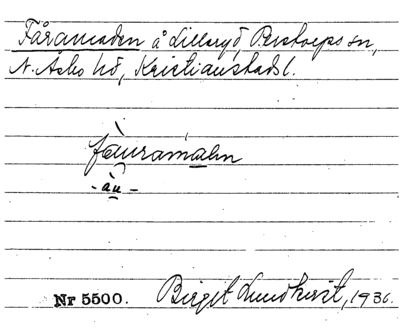 Fåramaden å Lillaryd, Perstorps sn,
N. Åsbo hd, Kristianstads l.
fàuramaꞏn
- àu -
Nr 5500. Birgit Lundkvist, 1936.